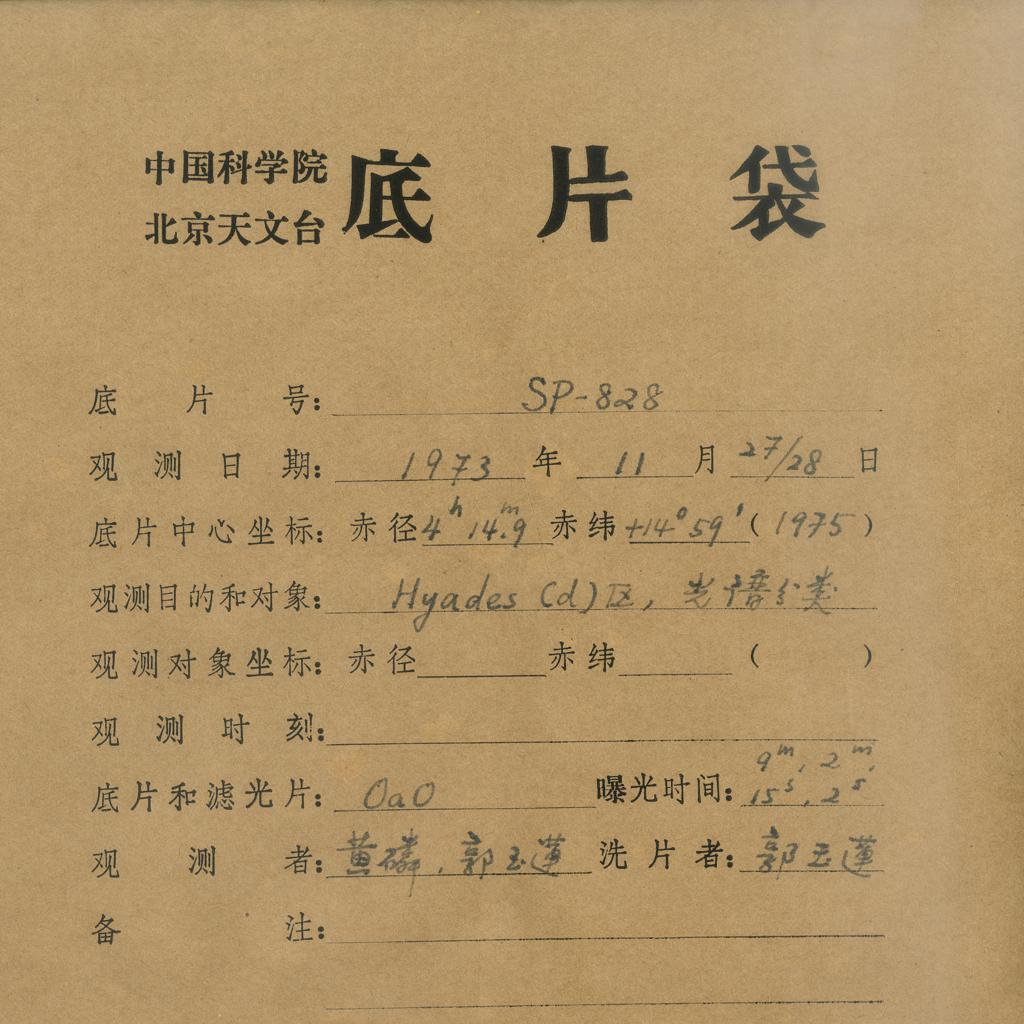 中国科学院
北京天文台
底片袋
底片号: SP-828
观测日期: 1973年 11月 27/28日
底片中心坐标: 赤径 4ʰ 14ᵐ.9 赤纬 +14°59′ (1975)
观测目的和对象: Hyades (d)区, 光谱分类
观测对象坐标: 赤径 赤纬 ( )
观测时刻:
底片和滤光片: OaO 曝光时间: 9ᵐ, 2ᵐ, 15ˢ, 2ˢ
观测者: 黄磷, 郭玉莲 洗片者: 郭玉莲
备注: